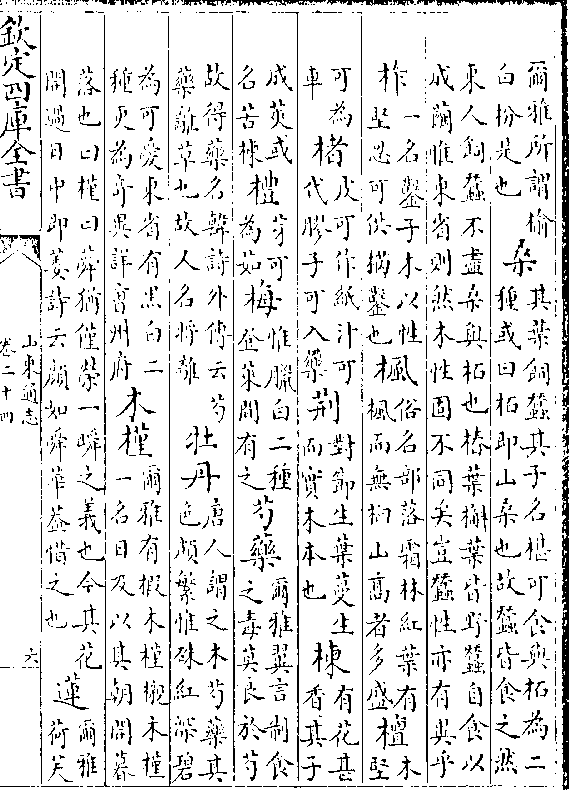 爾雅所謂榆
白枌是也
桑
其葉飼蠶其子名椹可食與柘為二
種或曰柘即山桑也故蠶皆食之然
東人飼蠶不盡桑與柘也椿葉槲葉皆野蠶自食以
成繭惟東省則然木性固不同矣豈蠶性亦有異乎
柞
一名鑿子木以性
堅忍可供搆鑿也
楓
俗名部落霜林紅葉有
楓而無桐山高者多盛
檀
木
堅
可為
車
楮
皮可作紙汁可
代膠子可入藥
荆
對節生葉蔓生
而實木本也
楝
有花甚
香其子
成莢或
名苦楝
芽可
為茹
梅
惟臘白二種
登萊間有之
芍藥
爾雅翼言制食
之毒莫良於芍
故得藥名韓詩外傳云芍
藥離草也故人名將離
牡丹
唐人謂之木芍藥其
色頗繁惟硃紅深碧
為可愛東省有黑白二
種更為奇異詳曹州府
木槿
爾雅有椵木槿櫬木槿
一名日及以其朝開暮
落也曰槿曰蕣猶僅榮一瞬之義也今其花
開過日中即萎詩云顔如舜華蓋借之也
蓮
爾雅
荷芙
欽定四庫全書
山東通志
卷二十四
六